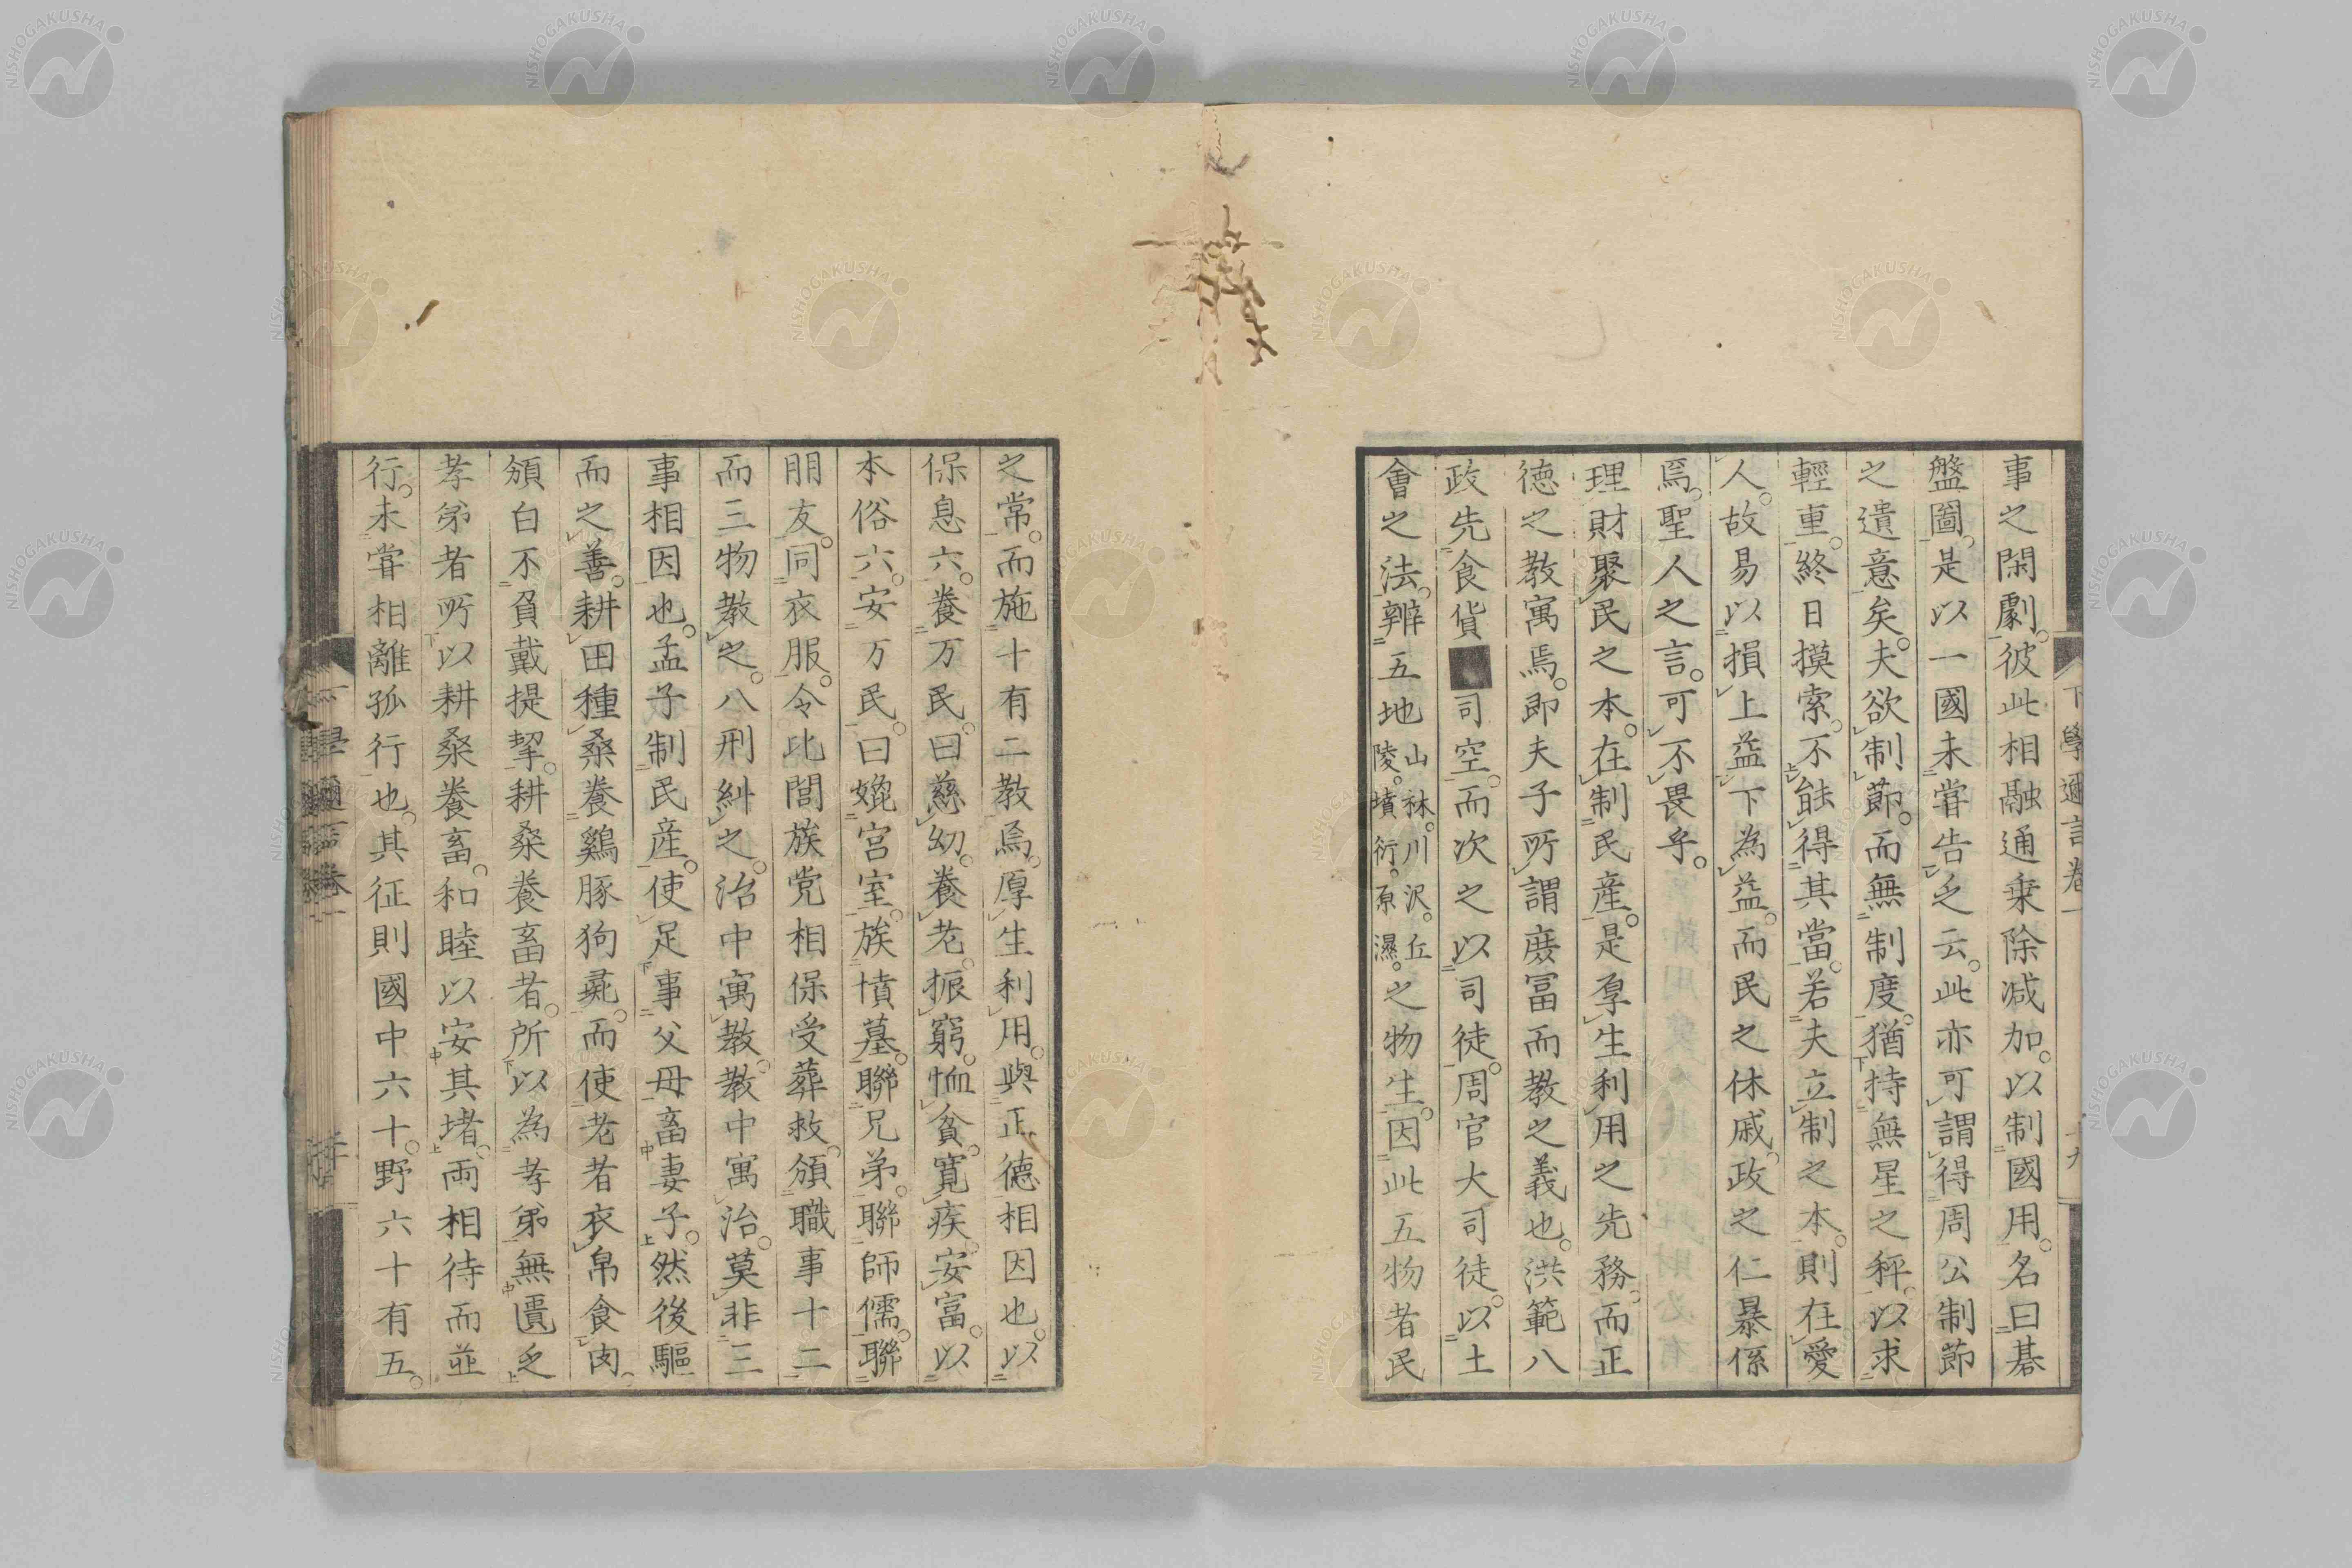 事之閑劇。彼此相融通乗除减加。以制國用。名曰碁
盤圖。是以一國未甞告乏云。此亦可謂得周公制節
之遺意矣。夫欲制節。而無制度。猶持無星之秤。以求
輕重。終日摸索。不能得其當。若夫立制之本。則在愛
人。故易以損上益下為益。而民之休戚。政之仁暴係
焉。聖人之言。可不畏乎。
理財聚民之本。在制民産。是厚生利用之先務。而正
徳之教寓焉。即夫子所謂庻冨而教之義也。洪範八
政先食貨■司空。而次之以司徒。周官大司徒。以土
會之法。辨五地山林。川沢。丘陵。墳衍。原濕。之物生。因此五物者民
下學邇言卷一
十九
之常。而施十有二教焉。厚生利用。與正德相因也。以
保息六。養万民。曰慈幼。養老。振窮。恤貧。寛疾。安富。以
本俗六。安万民。曰媺宮室。族墳墓。聯兄弟。聯師儒。聯
朋友。同衣服。令比閭族党相保受葬救。頒職事十二
而三物教之。八刑糾之。治中寓教。教中寓治。莫非三
事相因也。孟子制民産。使足事父母畜妻子。然後驅
而之善。耕田種桑養鷄豚狗彘。而使老者衣帛食肉。
頒白不負戴提挈。耕桑養畜者。所以為孝弟無匱乏
孝弟者所以耕桑養畜。和睦以安其堵。兩相待而並
行。未甞相離孤行也。其征則國中六十。野六十有五。